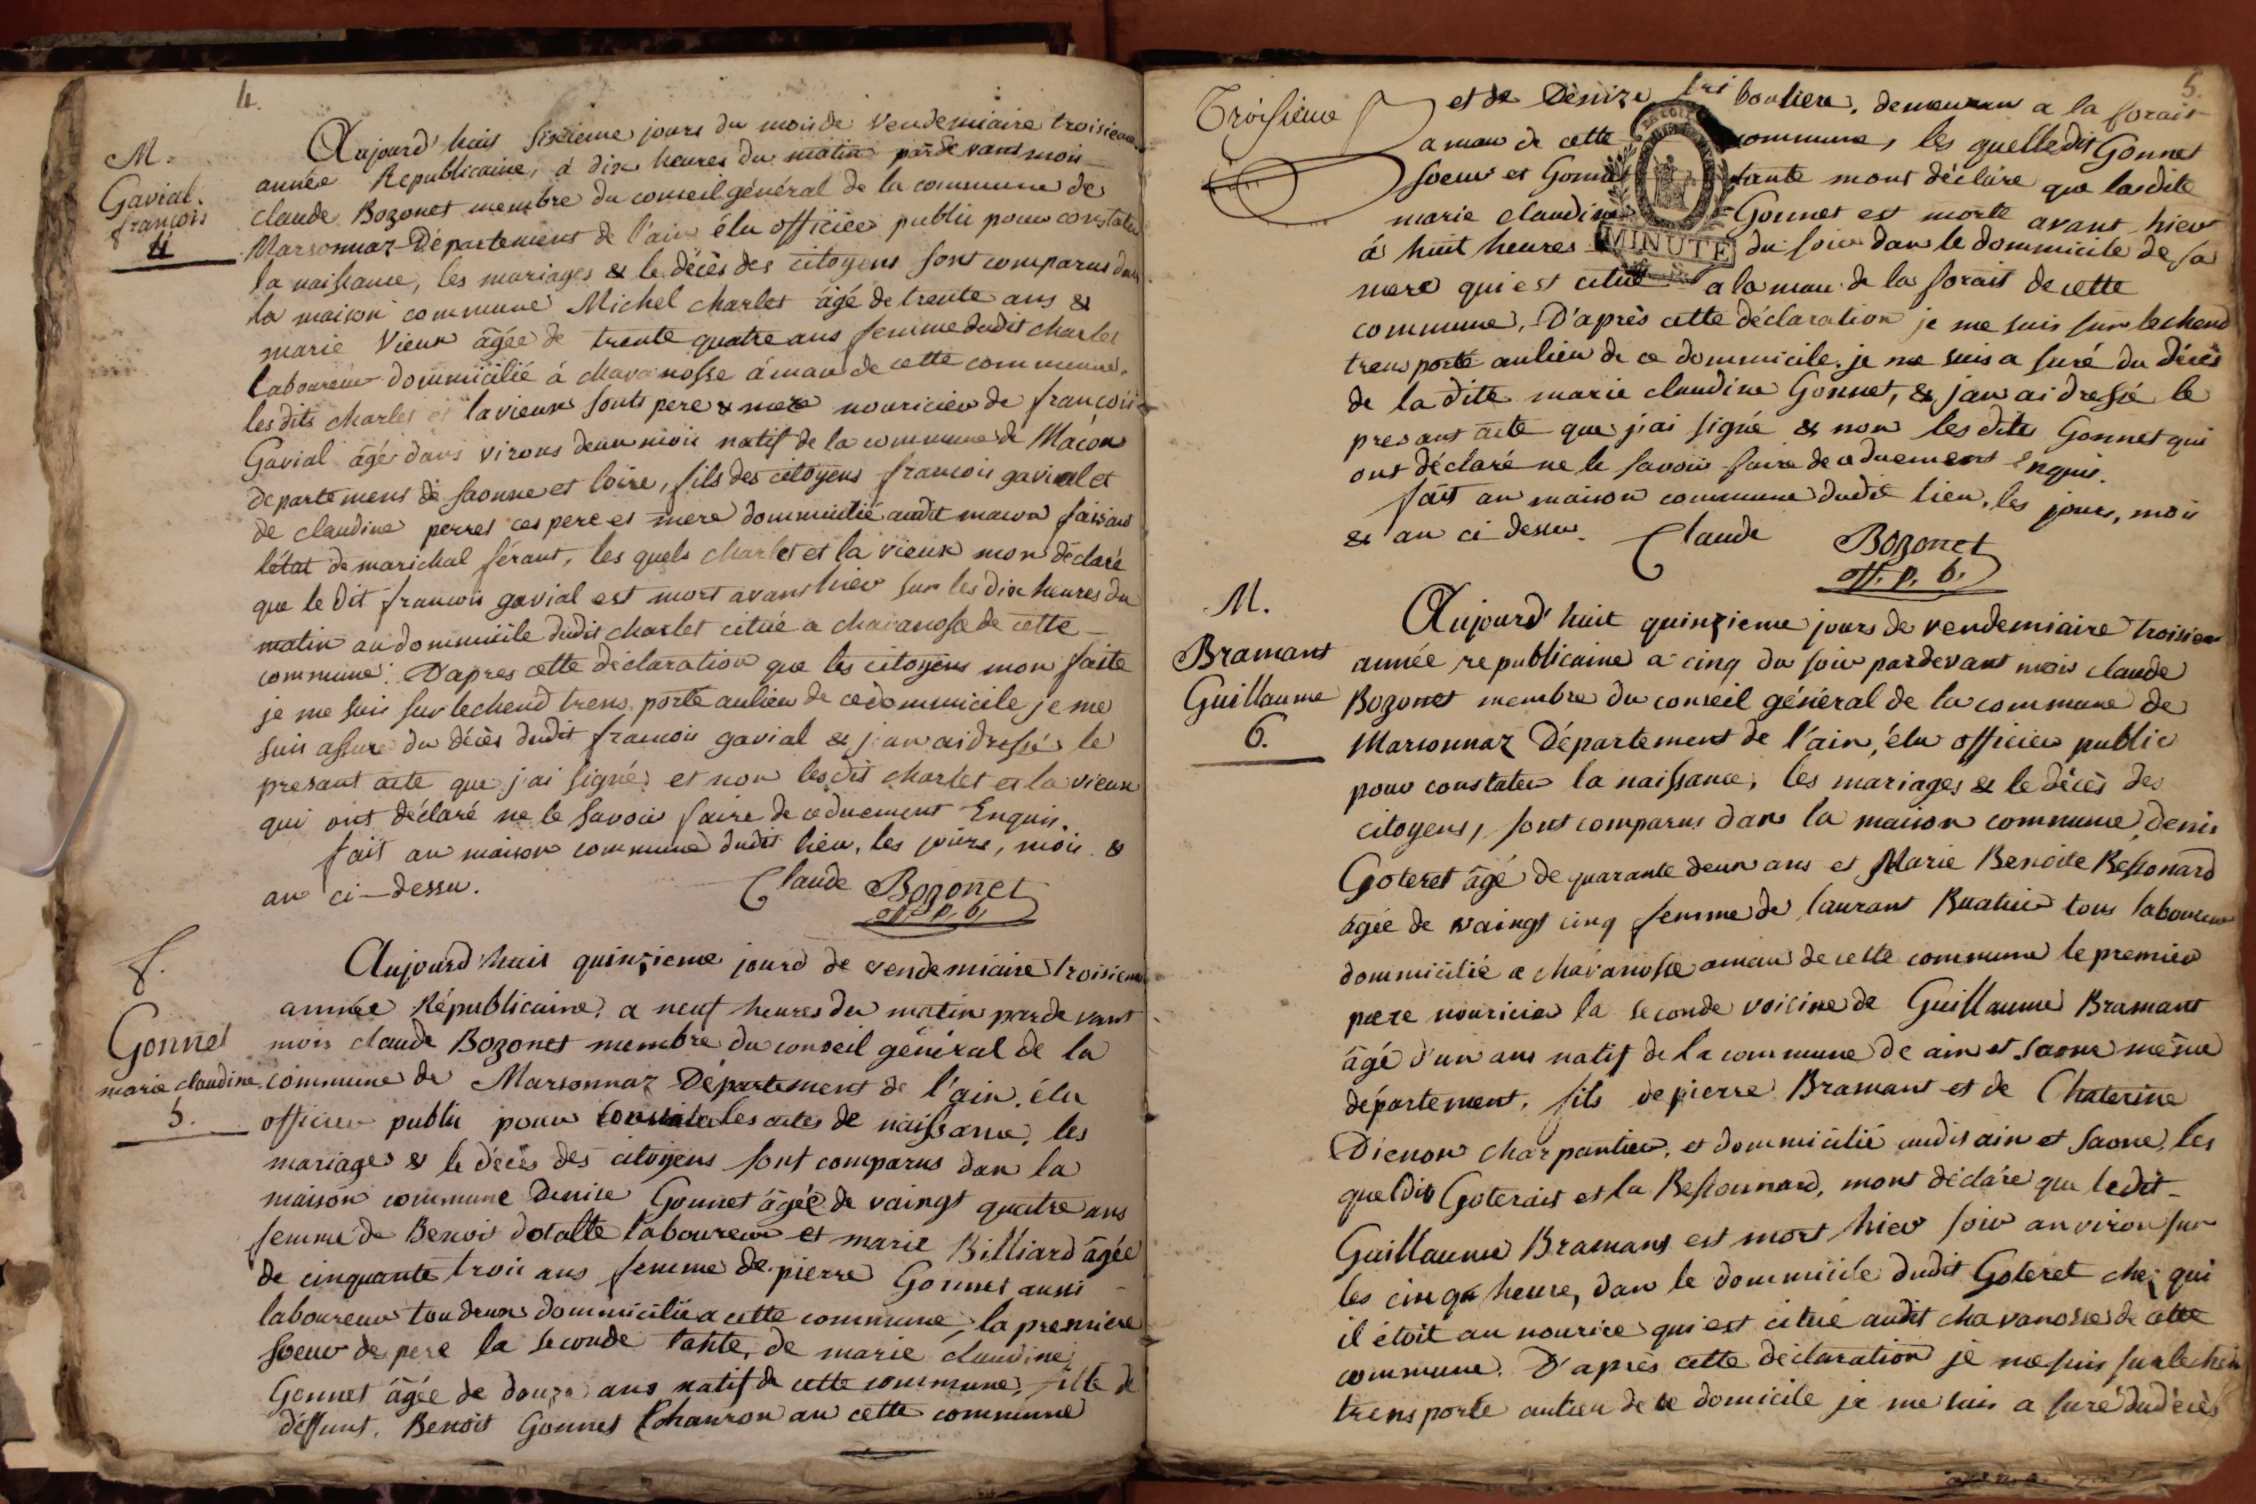 4.
M.
Gavial.
françois
4
Aujourd'huis sixieme jours du mois de vendemiaire troisieme
année Republicaine, a dix heures du matin pardevant mois
claude Bozonet membre du conseil général de la commune de
Marsonnaz Département de l'ain élu officiée public pour constater
la naissance, les mariages & le décès des citoyens sont comparus dans
la maison commune Michel charlet âgé de trente ans &
marie Vieux âgée de trente quatre ans femme dudit charlet
laboureur dommicilié à chavanosse âmau de cette commune.
lesdits charlet et lavieux sonts pere & mere nouricier de françois
Gavial âgé dans virons deux mois natif de la commune de Macon
departement de saonne et loire, fils des citoyens francois gavial et
de claudine perret ces pere et mere dommicilié audit macon faisant
l'état de marichal férant, les quels charlet et la vieux mon déclaré
que le dit francois gavial est mort avant hier sur les dix heures du
matin au dommicile dudit charlet citué a chavanosse de cette
commune. D'apres cette déclaration que les citoyens mon faite
je me suis sur lechend trens porté aulieu de ce dommicile je me
suis assuré du décès dudit francois gavial & j'an ai dressé le
presant acte que j'ai signé et non lesdit charlet et la vieux
qui ont déclaré ne le savoir faire de ce duement Enquis.
fait an maison commune dudit lieu, les jours, mois &
an ci-dessu. Claude Bozonet
off. p. b.
f.
Gonnet
marie claudine
5.
Aujourd'huit quinzieme jours de vendemiaire troisieme
année Républicaine, a neuf heures du matin pardevant
mois claude Bozonet membre du conseil général de la
commune de Marsonnaz Département de l'ain, élu
officier public pour constater les actes de naissance, les
mariages & le décès des citoyens sont comparus dan la
maison commune Denise Gonnet âgée de vaingt quatre ans
femme de Benoit dotalle laboureur et marie Billiard âgée
de cinquante trois ans femme de pierre Gonnet aussi
laboureur tou deux dommicilié a cette commune, la premiere
soeur de pere la seconde tante, de marie claudine
Gonnet âgée de douze ans natif de cette commune, fille de
déffunt. Benoit Gonnet Chanron an cette commune
5.
Troisieme et de Denize boutiere, demeuran a la forait
amau de cette commune, les quelledit Gonnet
soeur et Gonnet tante mont déclaré que ladite
marie claudine Gonnet est morte avant hier
MINUTE
à huit heures du soir dan le dommicile de sa
mere qui est citué a lamau de la forait de cette
commune. D'après cette déclaration je me suis sur lechend
tren porté aulieu de ce dommicile. je me suis a suré du décès
de la dite marie claudine Gonnet, & j'an ai dressé le
presant acte que j'ai signé & non les dite Gonnet qui
ont déclaré ne le savoir faire de ce duement enquis.
fait an maison commune dudit lieu, les jours, mois
& an ci dessu. Claude Bozonet
off. p. b.
M.
Bramant
Guillaume
6.
Aujourd'huit quinzieme jours de vendemiaire troisiem
année republicaine a cinq du soir pardevant mois claude
Bozonet membre du conseil général de la commune de
Marsonnaz Département de l'ain, élu officier public
pour constater la naissance, les mariages & le décès des
citoyens, sont comparus dans la maison commune denis
Goteret âgé de quarante deux ans et Marie Benoite Bessonard
agée de vaingt cinq femme de laurant Buatier tous laboureur
dommicilié a chavanosse amau de cette commune le premier
pere nouricier la seconde voicine de Guillaume Bramant
âgé d'un ans natif de la commune de ain et saone même
département, fils de pierre Bramant et de Chaterine
Dienon charpantier, et dommicilié audit ain et saone, les
queldit Goterait et la Bessonnard, mont déclaré que ledit
Guillaume Bramant est mort hier soir anviron sur
les cinq heure, dan le dommicile dudit Goteret chez qui
il étoit an nourice qui est citué audit chavanosse de cette
commune. D'après cette déclaration je me suis sur lechen
trens porté aulieu de ce domicile je me suis a suré dudécès